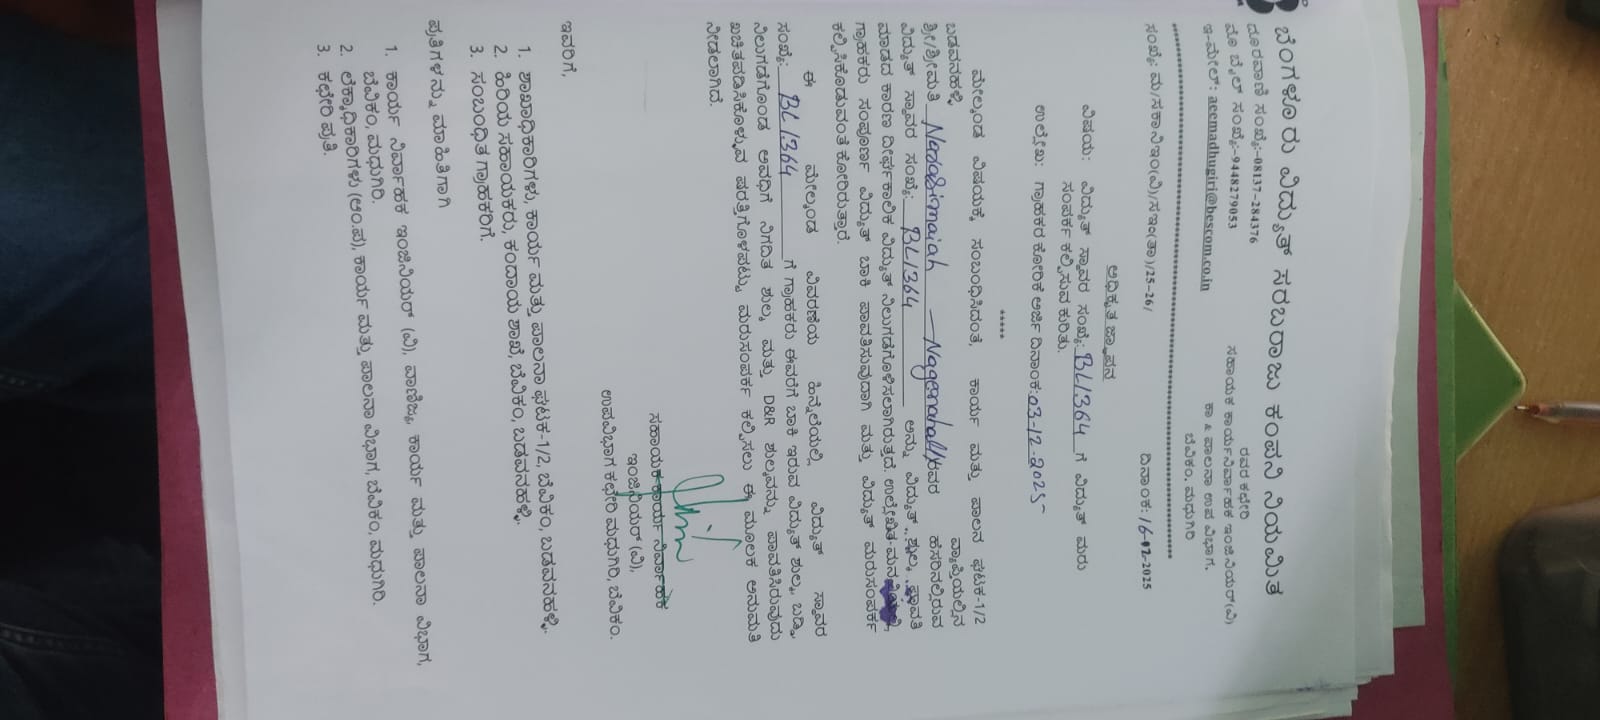 ಬೆಂಗಳೂರು ವಿದ್ಯುತ್ ಸರಬರಾಜು ಕಂಪನಿ ನಿಯಮಿತ
ದೂರವಾಣಿ ಸಂಖ್ಯೆ:-08137-284376
ಮೊಬೈಲ್ ಸಂಖ್ಯೆ:-9448279053
ಇ-ಮೇಲ್: aeemadhugiri@bescom.co.in
ರವರ ಕಛೇರಿ
ಸಹಾಯಕ ಕಾರ್ಯನಿರ್ವಾಹಕ ಇಂಜಿನಿಯರ್(ವಿ)
ಕಾ & ಪಾಲನಾ ಉಪ ವಿಭಾಗ,
ಬೆವಿಕಂ, ಮಧುಗಿರಿ
ಸಂಖ್ಯೆ: ಮ/ಸಕಾನಿಇಂ(ವಿ)/ಸಇಂ(ತಾ)/25-26/ ದಿನಾಂಕ: 16-02-2025
ಅಧಿಕೃತ ಜ್ಞಾಪನ
ವಿಷಯ: ವಿದ್ಯುತ್ ಸ್ಥಾವರ ಸಂಖ್ಯೆ: BL1364 ಗೆ ವಿದ್ಯುತ್ ಮರು
ಸಂಪರ್ಕ ಕಲ್ಪಿಸುವ ಕುರಿತು.
ಉಲ್ಲೇಖ: ಗ್ರಾಹಕರ ಕೋರಿಕೆ ಅರ್ಜಿ ದಿನಾಂಕ:03-12-2025
*****
ಮೇಲ್ಕಂಡ ವಿಷಯಕ್ಕೆ ಸಂಬಂಧಿಸಿದಂತೆ, ಕಾರ್ಯ ಮತ್ತು ಪಾಲನ ಘಟಕ-1/2
ಬಡವನಹಳ್ಳಿ ವ್ಯಾಪ್ತಿಯಲ್ಲಿನ
ಶ್ರೀ/ಶ್ರೀಮತಿ Narasimaiah Nagenahally ರವರ ಹೆಸರಿನಲ್ಲಿರುವ
ವಿದ್ಯುತ್ ಸ್ಥಾವರ ಸಂಖ್ಯೆ: BL1364 ಅನ್ನು ವಿದ್ಯುತ್ ಶುಲ್ಕ ಪಾವತಿ
ಮಾಡದ ಕಾರಣ ದೀರ್ಘಕಾಲಿಕ ವಿದ್ಯುತ್ ನಿಲುಗಡೆಗೊಳಿಸಲಾಗಿರುತ್ತದೆ. ಉಲ್ಲೇಖಿತ
ಗ್ರಾಹಕರು ಸಂಪೂರ್ಣ ವಿದ್ಯುತ್ ಬಾಕಿ ಪಾವತಿಸುವುದಾಗಿ ಮತ್ತು ವಿದ್ಯುತ್ ಮರುಸಂಪರ್ಕ
ಕಲ್ಪಿಸಿಕೊಡುವಂತೆ ಕೋರಿರುತ್ತಾರೆ.
ಈ ಮೇಲ್ಕಂಡ ವಿವರಣೆಯ ಹಿನ್ನೆಲೆಯಲ್ಲಿ ವಿದ್ಯುತ್ ಸ್ಥಾವರ
ಸಂಖ್ಯೆ: BL1364 ಗೆ ಗ್ರಾಹಕರು ಈವರೆಗೆ ಬಾಕಿ ಇರುವ ವಿದ್ಯುತ್ ಶುಲ್ಕ, ಬಡ್ಡಿ,
ನಿಲುಗಡೆಗೊಂಡ ಅವಧಿಗೆ ನಿಗದಿತ ಶುಲ್ಕ ಮತ್ತು D&R ಶುಲ್ಕವನ್ನು ಪಾವತಿಸಿರುವುದು
ಖಚಿತಪಡಿಸಿಕೊಳ್ಳುವ ಷರತ್ತಿಗೊಳಪಟ್ಟು ಮರುಸಂಪರ್ಕ ಕಲ್ಪಿಸಲು ಈ ಮೂಲಕ ಅನುಮತಿ
ನೀಡಲಾಗಿದೆ.
ಸಹಾಯಕ ಕಾರ್ಯ ನಿರ್ವಾಹಕ
ಇಂಜಿನಿಯರ್ (ವಿ),
ಉಪವಿಭಾಗ ಕಛೇರಿ ಮಧುಗಿರಿ, ಬೆವಿಕಂ.
ಇವರಿಗೆ,
1. ಶಾಖಾಧಿಕಾರಿಗಳು, ಕಾರ್ಯ ಮತ್ತು ಪಾಲನಾ ಘಟಕ-1/2, ಬೆವಿಕಂ, ಬಡವನಹಳ್ಳಿ.
2. ಹಿರಿಯ ಸಹಾಯಕರು, ಕಂದಾಯ ಶಾಖೆ, ಬೆವಿಕಂ, ಬಡವನಹಳ್ಳಿ.
3. ಸಂಬಂಧಿತ ಗ್ರಾಹಕರಿಗೆ.
ಪ್ರತಿಗಳನ್ನು ಮಾಹಿತಿಗಾಗಿ
1. ಕಾರ್ಯ ನಿರ್ವಾಹಕ ಇಂಜಿನಿಯರ್ (ವಿ), ವಾಣಿಜ್ಯ, ಕಾರ್ಯ ಮತ್ತು ಪಾಲನಾ ವಿಭಾಗ,
ಬೆವಿಕಂ, ಮಧುಗಿರಿ.
2. ಲೆಕ್ಕಾಧಿಕಾರಿಗಳು (ಆಂ.ಪ), ಕಾರ್ಯ ಮತ್ತು ಪಾಲನಾ ವಿಭಾಗ, ಬೆವಿಕಂ, ಮಧುಗಿರಿ.
3. ಕಛೇರಿ ಪ್ರತಿ.